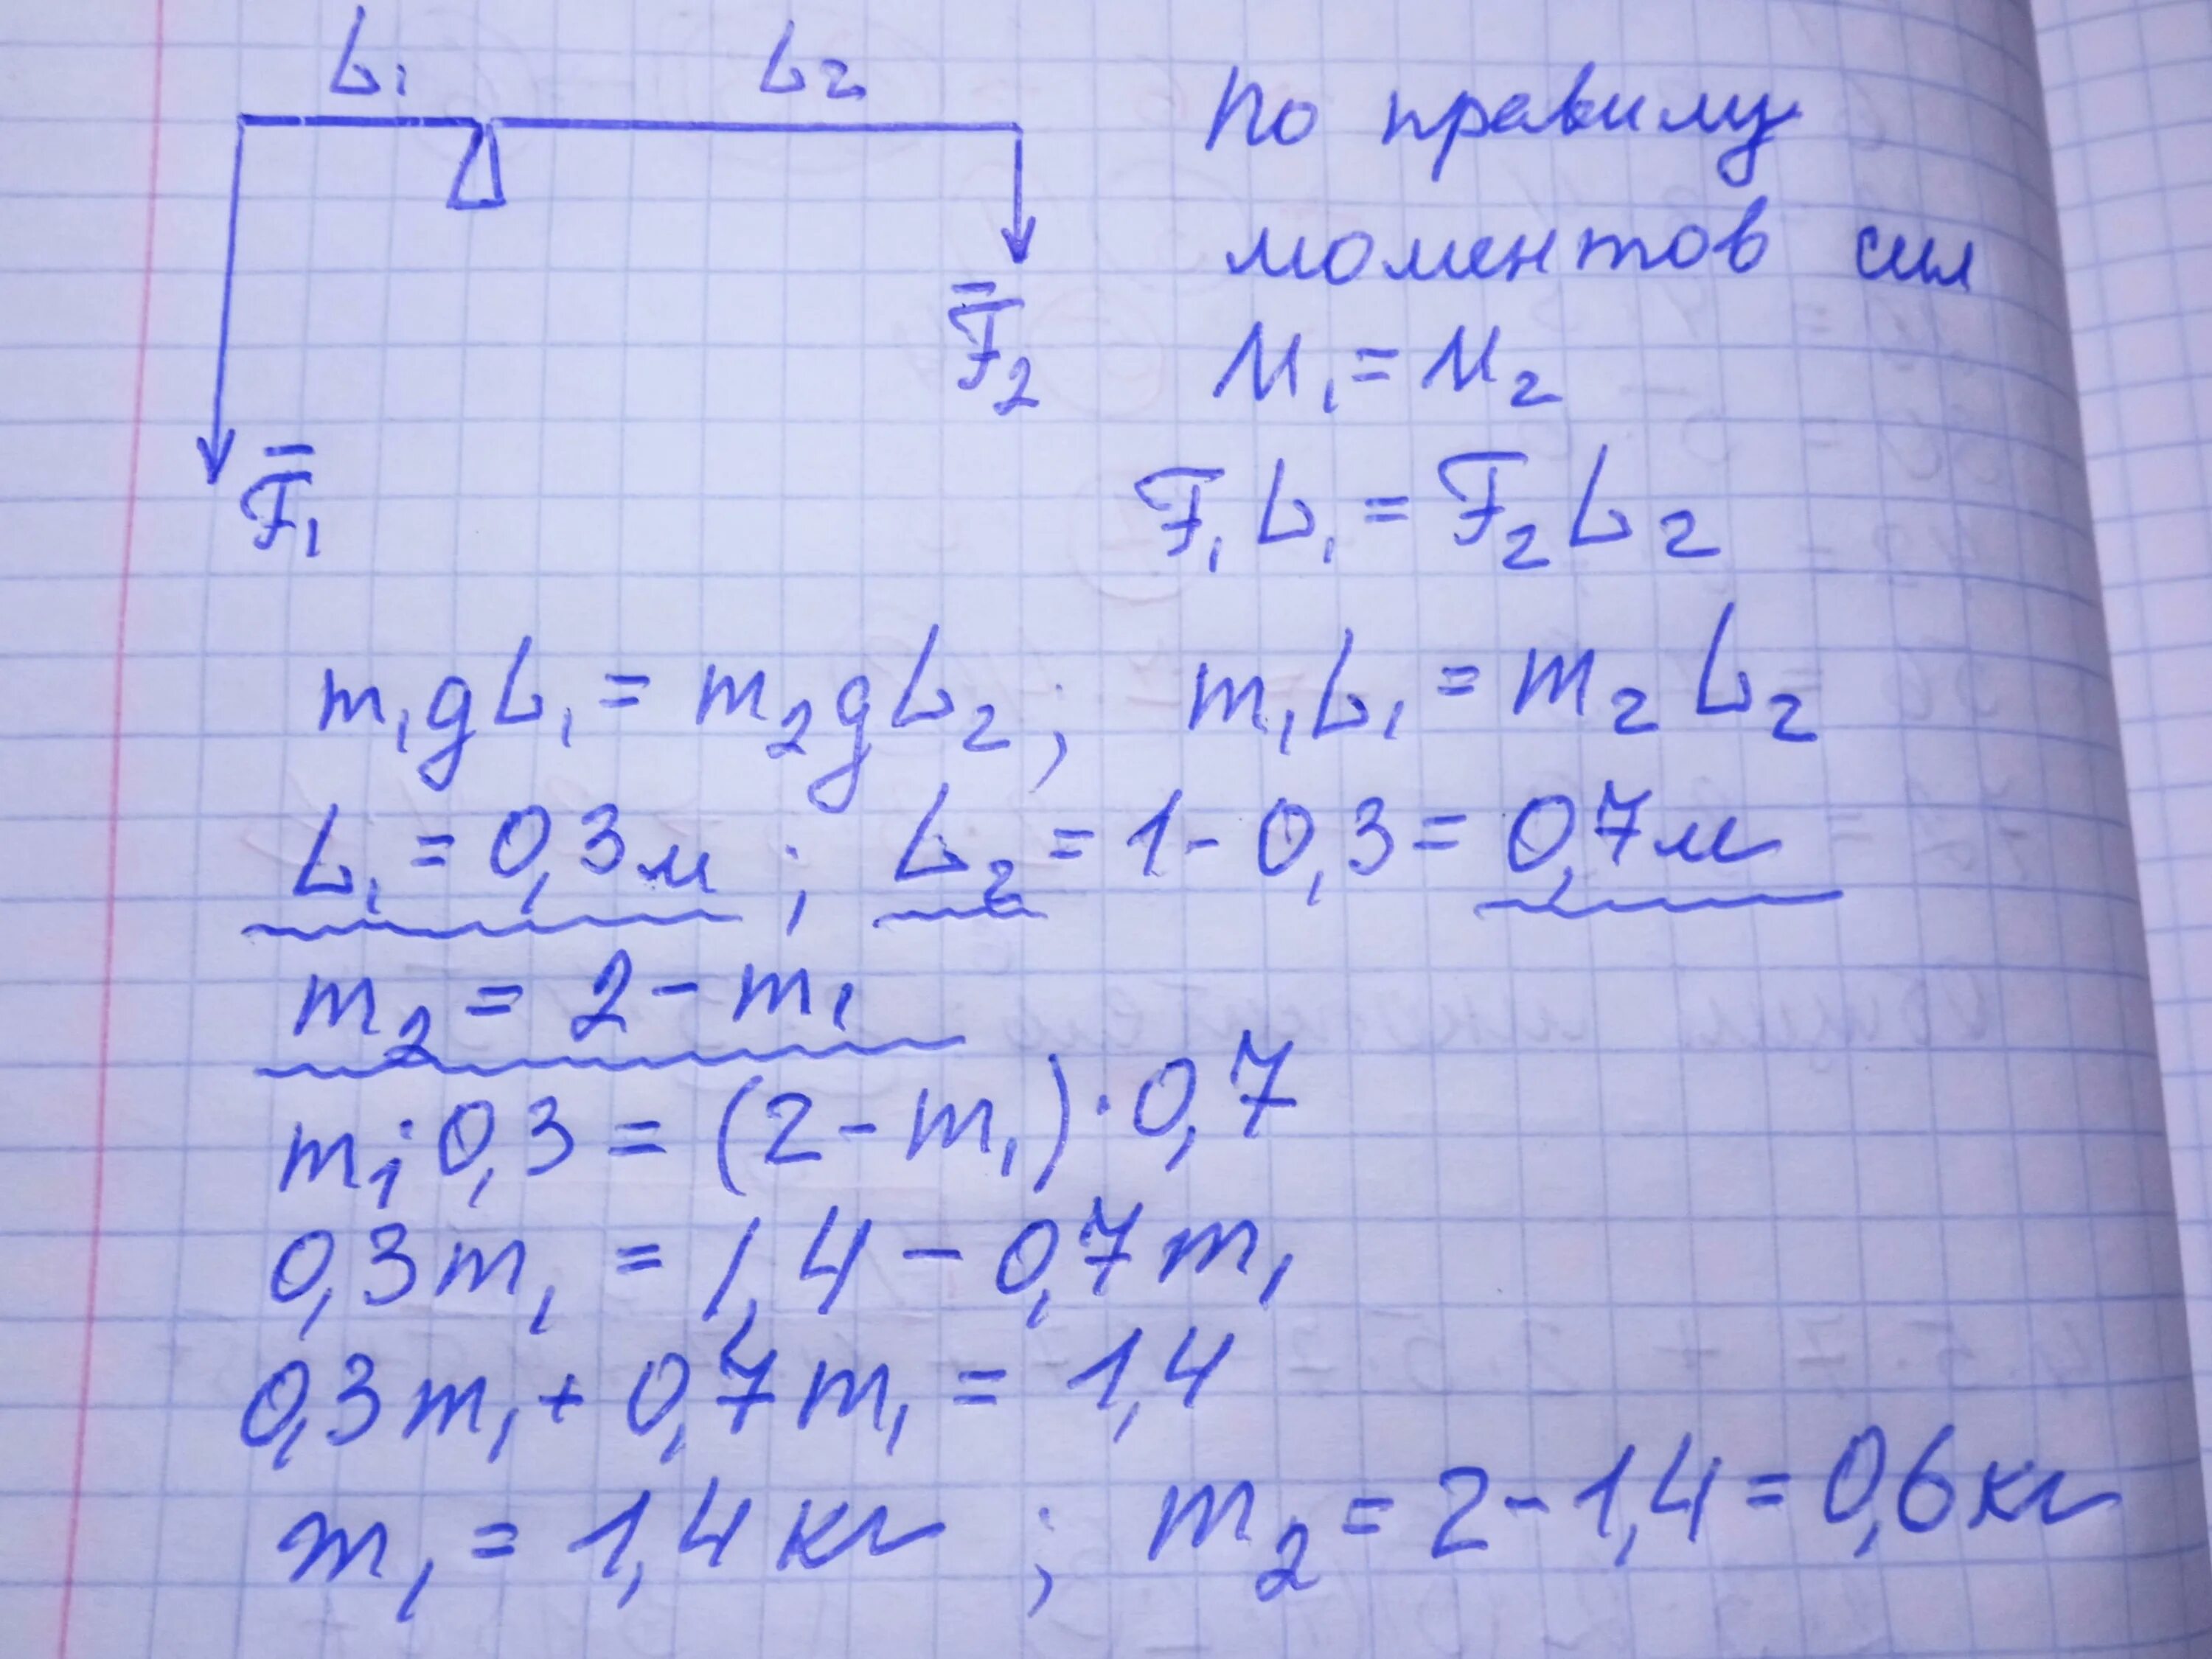 L₁ L₂
По правилу
моментов сил
F̅₂
M₁ = M₂
F̅₁
F₁L₁ = F₂L₂
m₁gL₁ = m₂gL₂; m₁L₁ = m₂L₂
L₁ = 0,3м; L₂ = 1 - 0,3 = 0,7м
m₂ = 2 - m₁
m₁·0,3 = (2 - m₁)·0,7
0,3m₁ = 1,4 - 0,7m₁
0,3m₁ + 0,7m₁ = 1,4
m₁ = 1,4 кг; m₂ = 2 - 1,4 = 0,6 кг